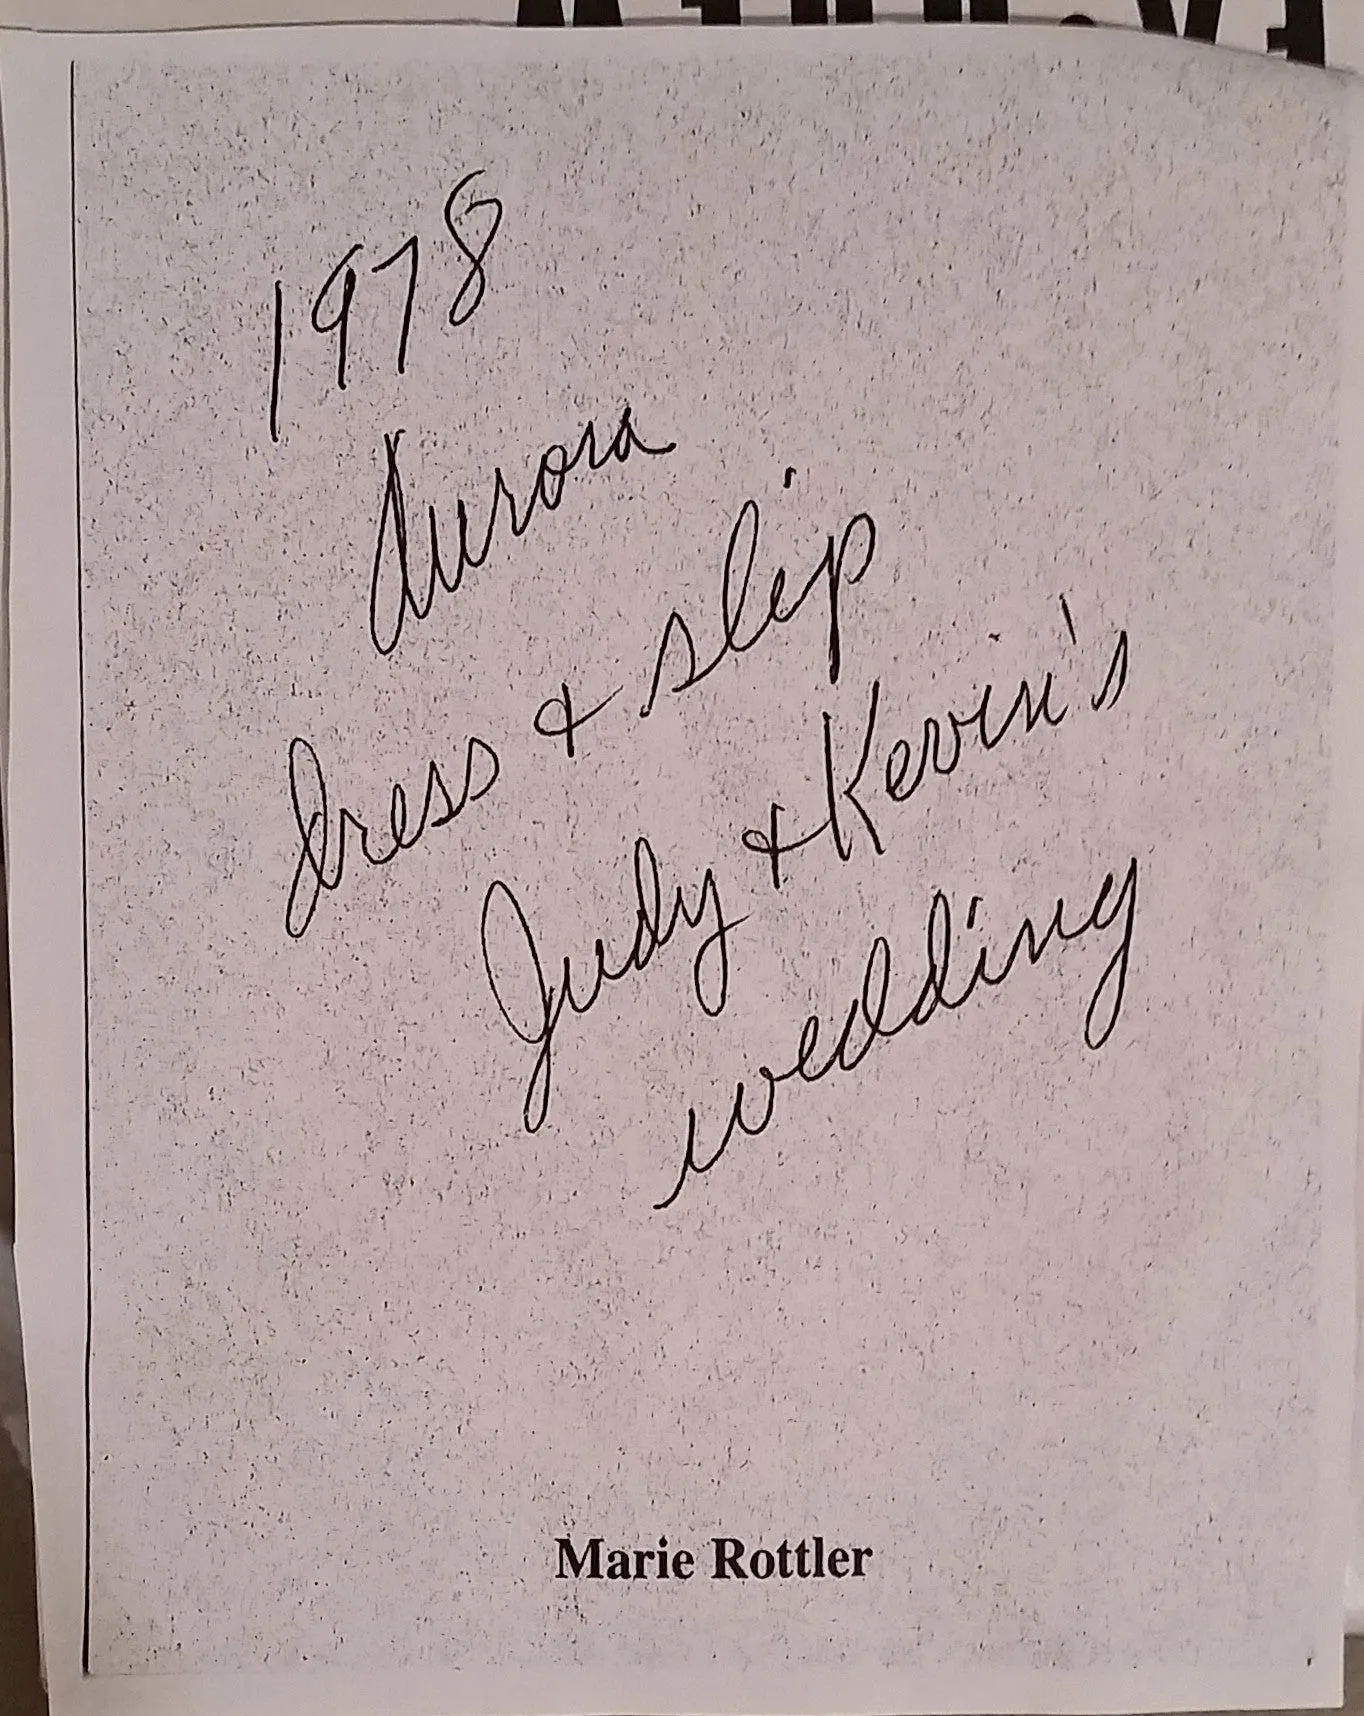 1978
Aurora
dress & slip
Judy & Kevin's
wedding
Marie Rottler